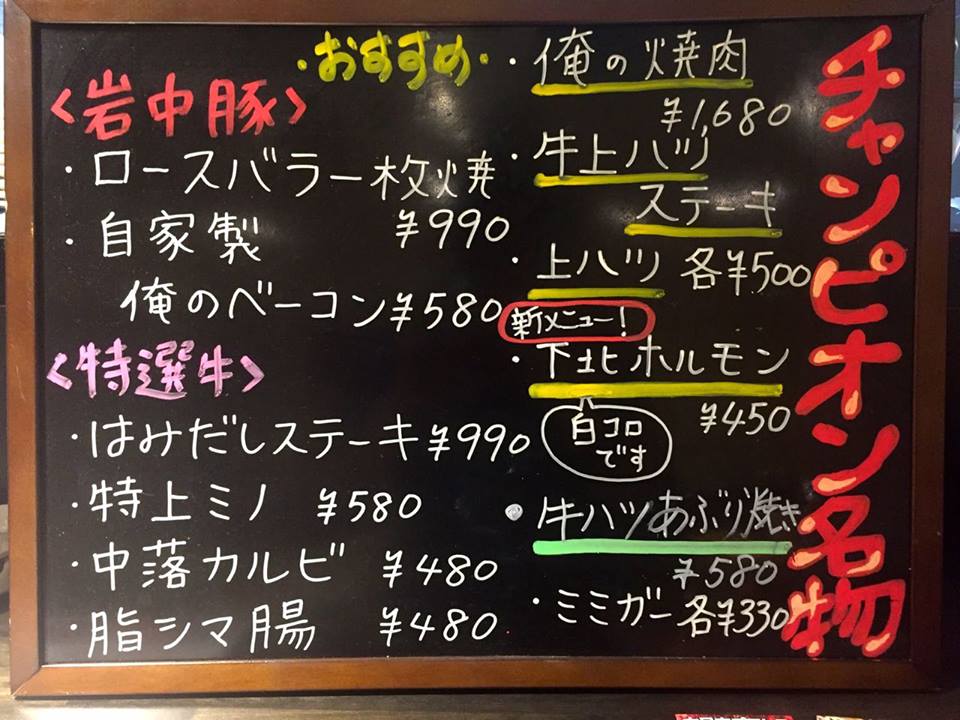 チャンピオン名物
・おすすめ・
・俺の焼肉
¥1,680
・牛上ハツ
ステーキ
・上ハツ 各¥500
新メニュー!
・下北ホルモン
¥450
白コロ
です
・牛ハツあぶり焼き
¥580
・ミミガー各¥330
<岩中豚>
・ロースバラ一枚焼
¥990
・自家製
俺のベーコン¥580
<特選牛>
・はみだしステーキ¥990
・特上ミノ ¥580
・中落カルビ ¥480
・脂シマ腸 ¥480